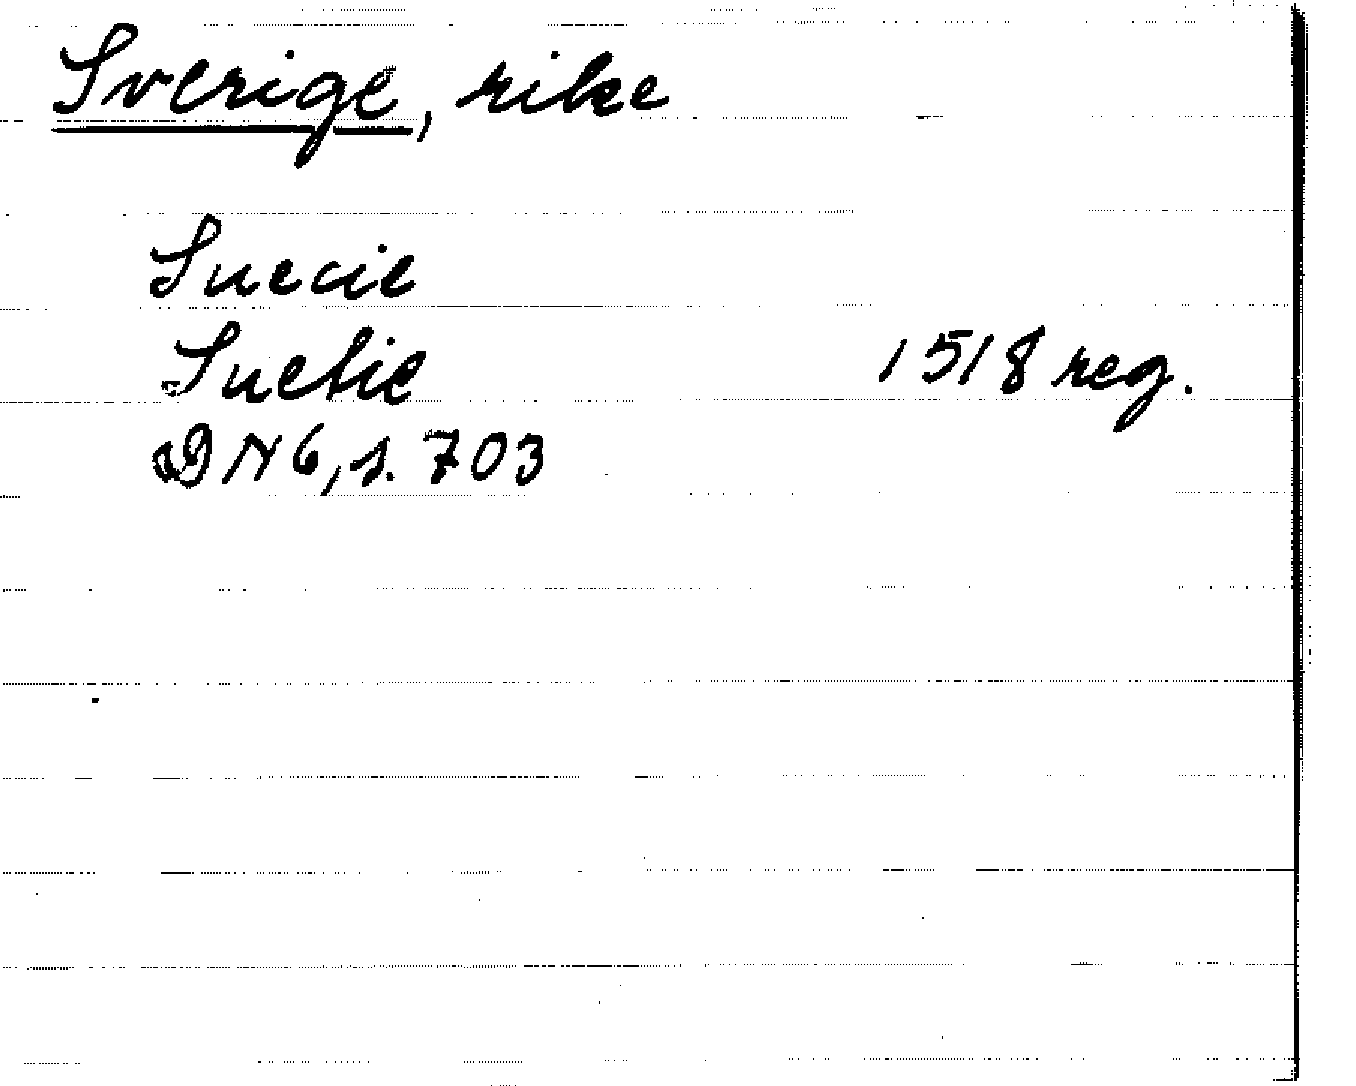 Sverige, rike
Suecie
Suetie 1518 reg.
DN 6, s. 703